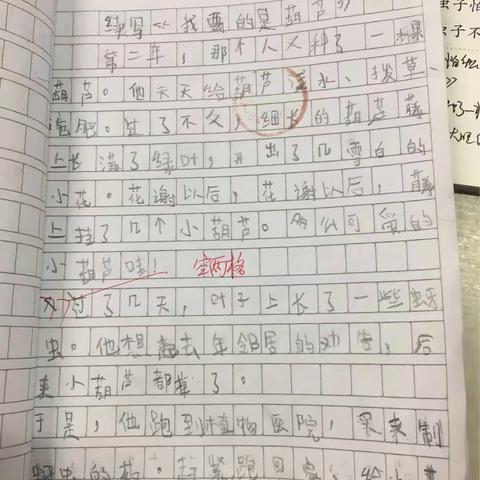 续写《我要的是葫芦》
第二年，那个人又种了一棵
葫芦。他天天给葫芦浇水、拨草、
施肥。过了不久，细长的葫芦藤
上长满了绿叶，开出了几雪白的
小花。花谢以后，花谢以后，藤
上挂了几个小葫芦。多么可爱的
小葫芦哇！ 空两格
又过了几天，叶子上长了一些蚜
虫。他想起去年邻居的劝告，后
来小葫芦都掉了。
于是，他跑到植物医院，买来制
蚜虫的药。赶紧跑回家，给小葫